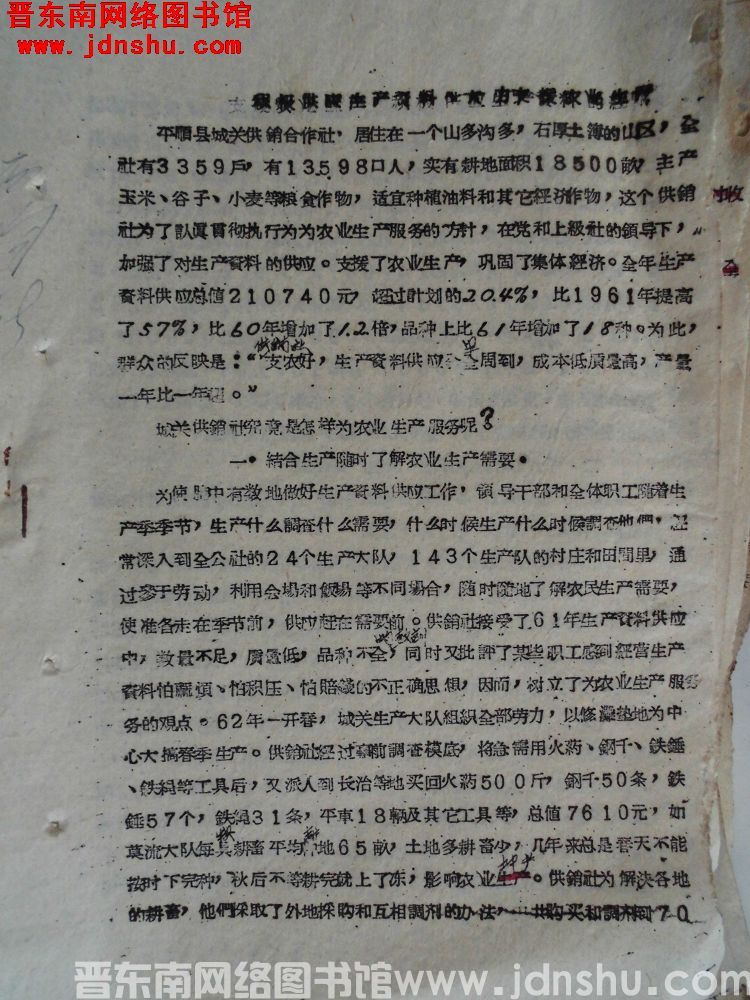 晋东南网络图书馆
www.jdnshu.com
积极供应生产资料 支援农业生产
平順县城关供銷合作社，居住在一个山多沟多，石厚土薄的山区，全
社有3359戶，有13598口人，实有耕地面积18500畝，主产
玉米、谷子、小麦等粮食作物，适宜种植油料和其它经济作物，这个供銷
社为了認眞貫彻执行为为农业生产服务的方針，在党和上級社的領导下，
加强了对生产資料的供应。支援了农业生产，巩固了集体經济。全年生产
資料供应总值210740元，超过計划的20.4%，比1961年提高
了57%，比60年增加了1.2倍，品种上比61年增加了18种。为此，
群众的反映是："供销社支农好，生产資料供应周到，成本低质量高，产量
一年比一年。"
城关供銷社究竟是怎样为农业生产服务呢？
一．結合生产随时了解农业生产需要．
为使中有数地做好生产資料供应工作，領导干部和全体职工随着生
产季季节，生产什么調查什么需要，什么时候生产什么时候調查他們，經
常深入到全公社的24个生产大队，143个生产队的村庄和田間里，通
过参于劳动，利用会場和飯場等不同場合，随时随地了解农民生产需要，
使准备走在季节前，供应赶在需要前。供銷社接受了61年生产資料供应
中，数量不足，质量低，品种不全，同时又批評了某些职工感到经营生产
資料怕麻煩、怕积压、怕賠錢的不正确思想，因而，树立了为农业生产服务
务的观点。62年一开春，城关生产大队組织全部劳力，以修灘垫地为中
心大搞春季生产。供銷社經过事前調查模底，将急需用火葯、鋼千、鉄錘
、鉄繩等工具后，又派人到长治等地买回火葯500斤，鋼千50条，鉄
錘57个，鉄繩31条，平車18輛及其它工具等，总值7610元，如
莫流大队每耕畜平均地65畝，土地多耕畜少，几年来总是春天不能
按时下完种，秋后不等耕完就上了冻，影响农业生产。供銷社为解决各地
的耕畜，他們採取了外地採购和互相調剂的办法，一共购买和調剂回70